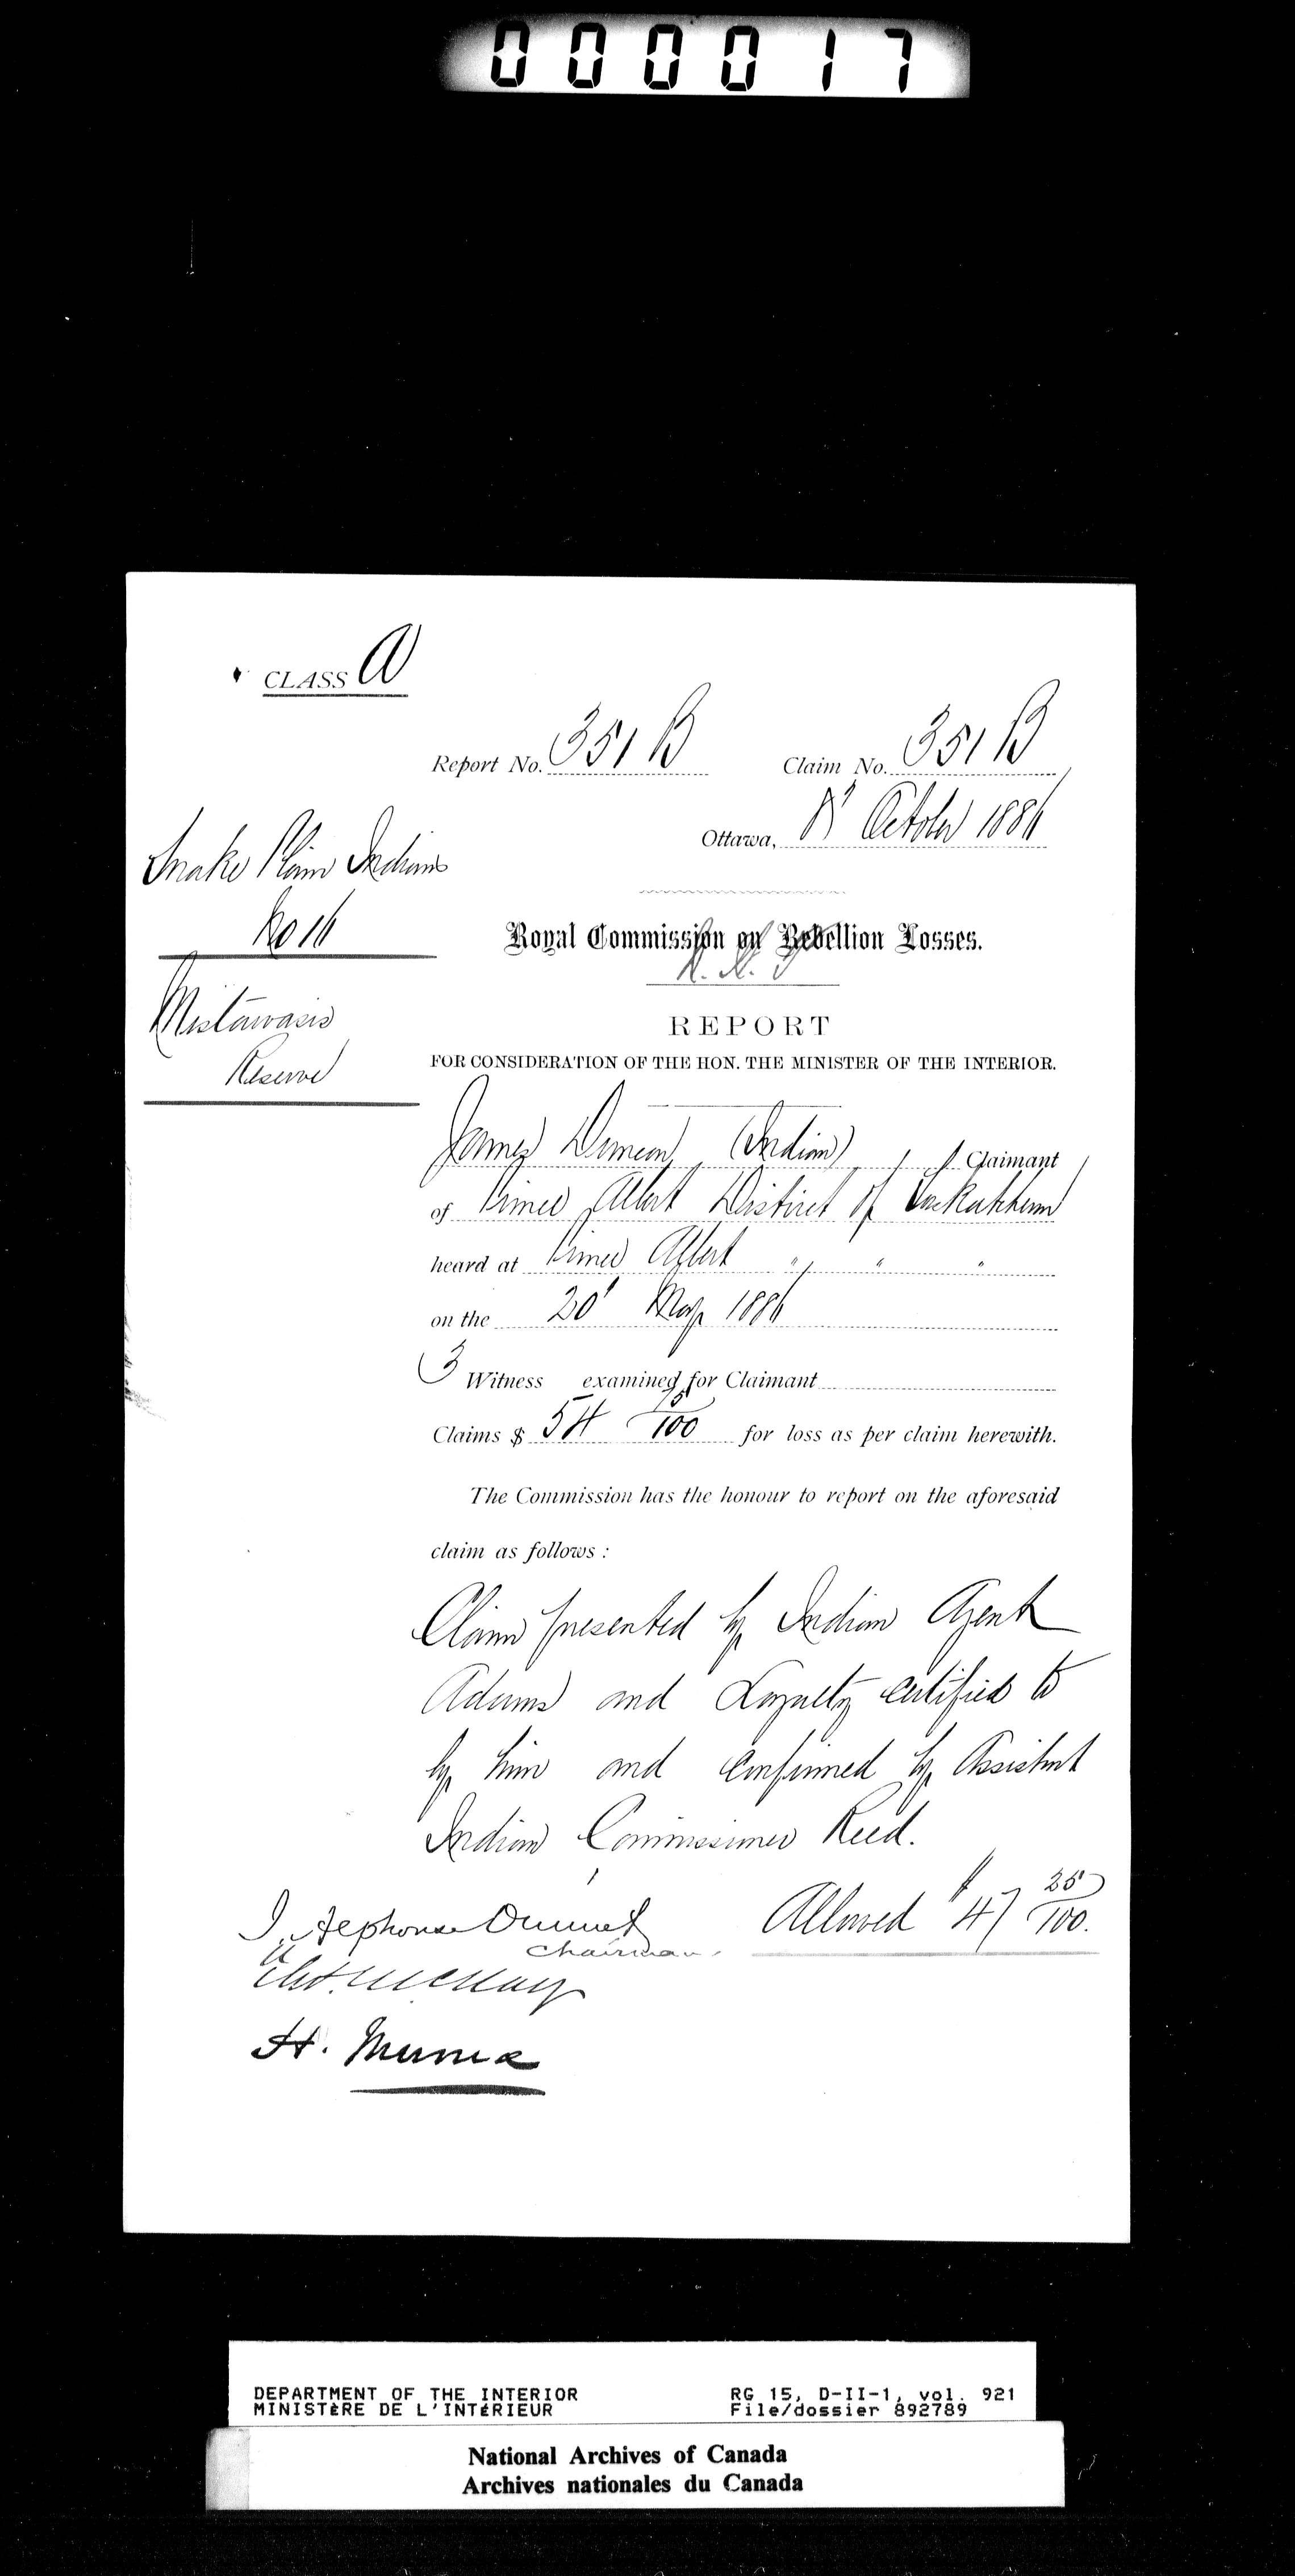 000017
CLASS A
Report No. 351 B Claim No. 351 B
Ottawa, 8' October 1886
Snake Plain Indians
No 16
Royal Commission on Rebellion Losses.
Mistawasis
Reserve
REPORT
FOR CONSIDERATION OF THE HON. THE MINISTER OF THE INTERIOR.
James (Indian) Claimant
of Prince Albert District of Saskatchewan
heard at Prince Albert " " "
on the 20' May 1886
3 Witness examined for Claimant
Claims $ 54 75/100 for loss as per claim herewith.
The Commission has the honour to report on the aforesaid
claim as follows :
Claim presented by Indian Agent
Adams and Loyalty certified to
by him and confirmed by Assistant
Indian Commissioner Reed.
Allowed $47 25/100.
J. Alphonse Ouimet
Chairman.
H. Muma
DEPARTMENT OF THE INTERIOR RG 15, D-II-1, vol. 921
MINISTÈRE DE L'INTÉRIEUR File/dossier 892789
National Archives of Canada
Archives nationales du Canada